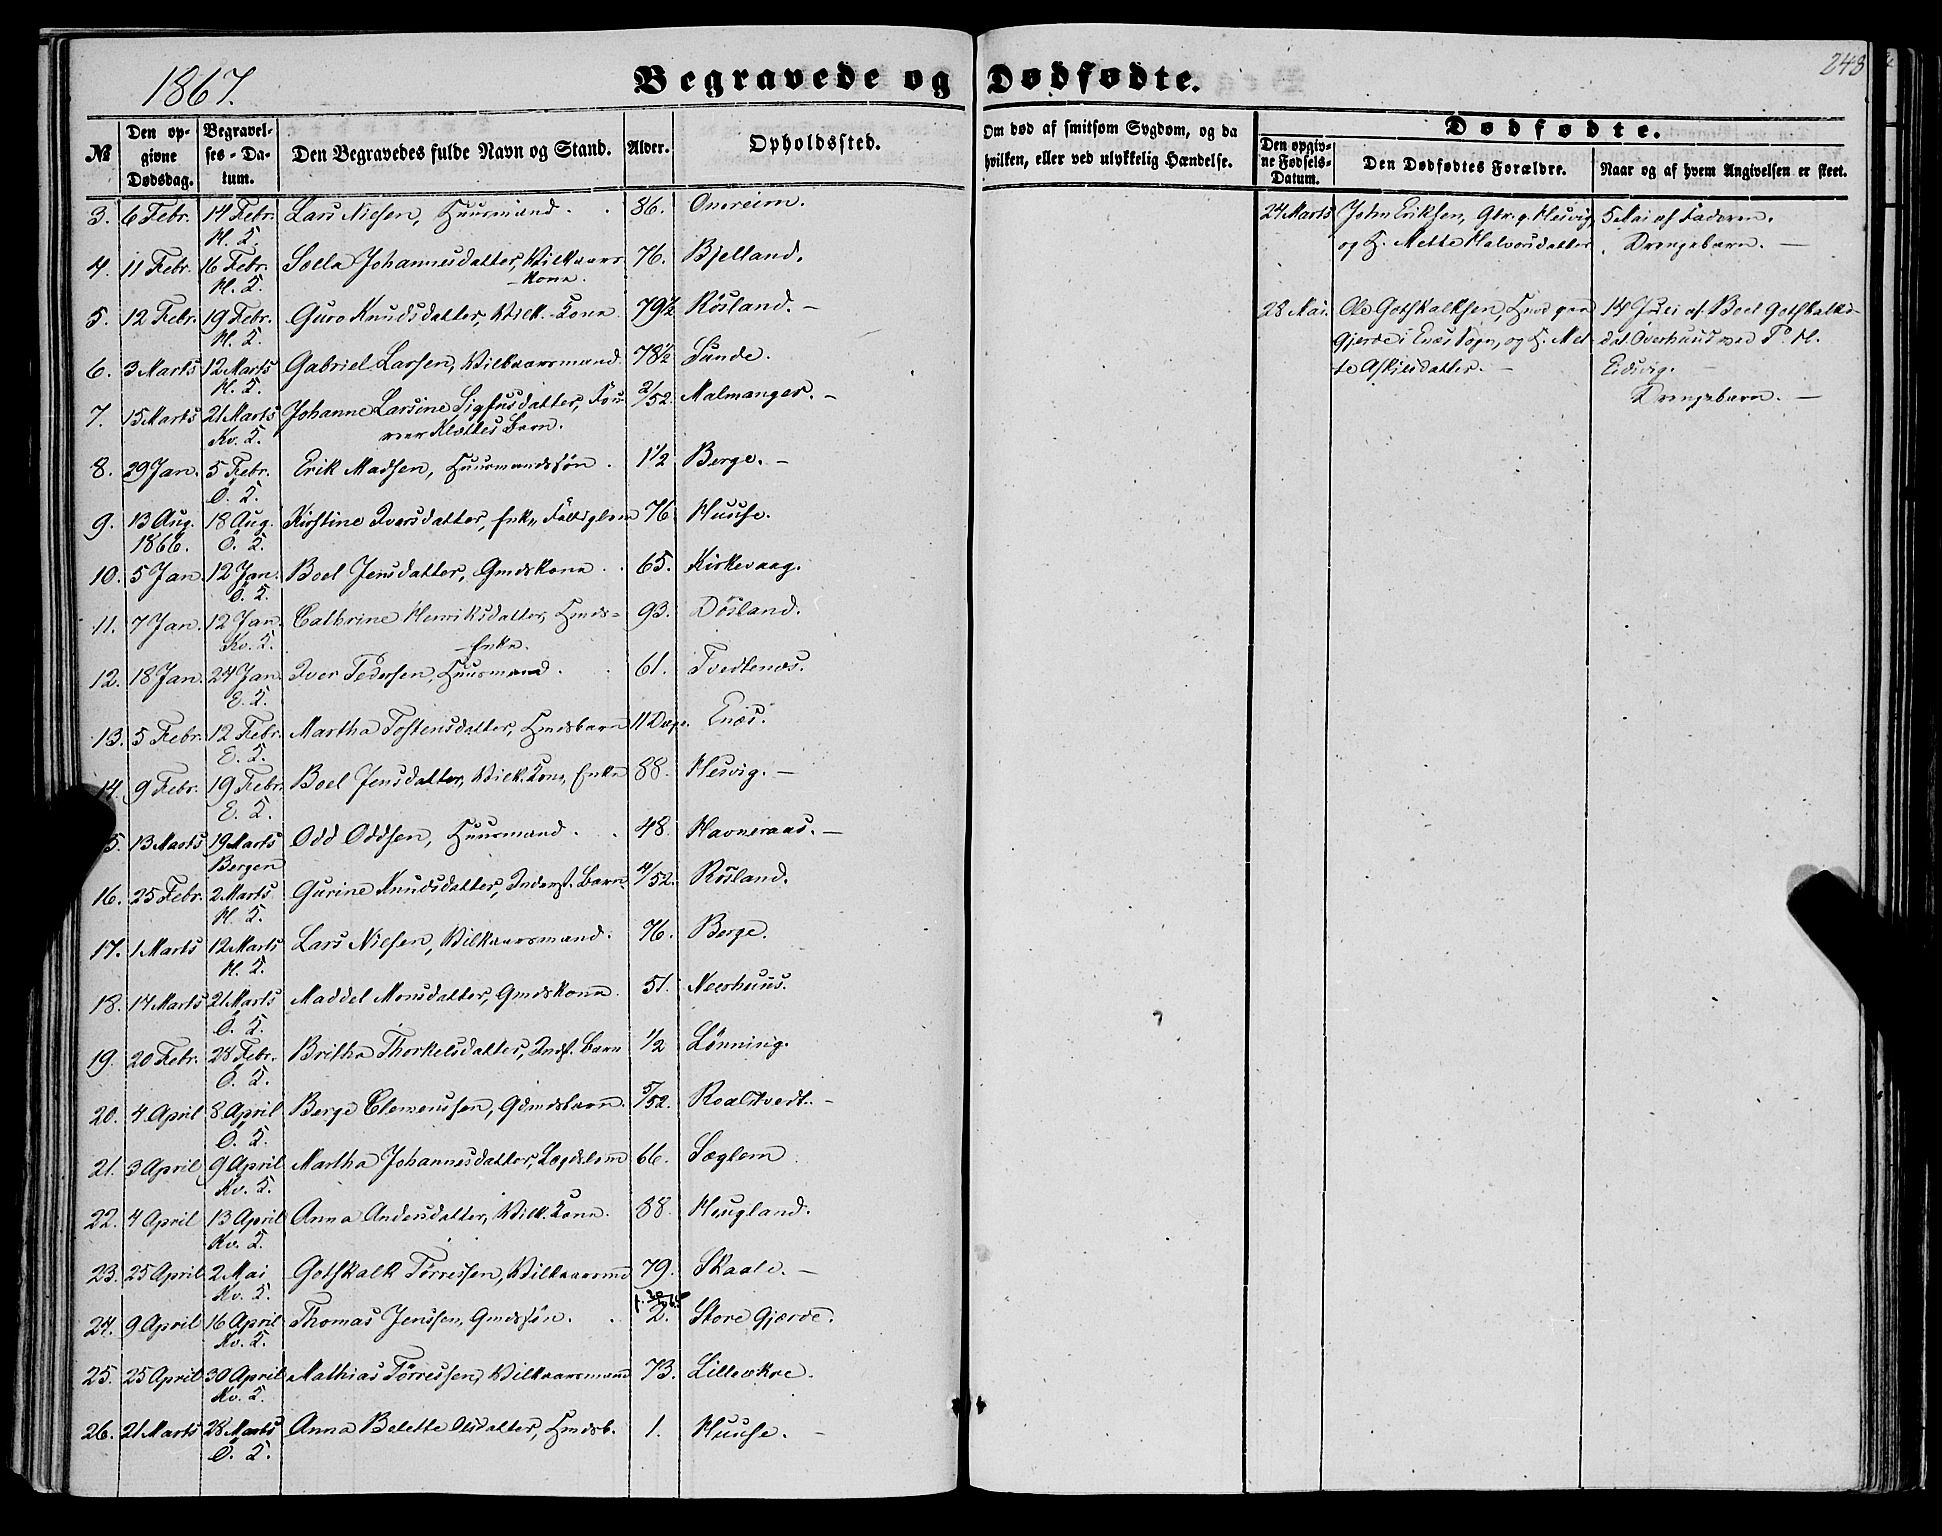 1867.
Begravede og Dødfødte.
248
№
Den opgivne Dødsdag.
Begravelses-Datum.
Den Begravedes fulde Navn og Stand.
Alder.
Opholdssted.
Om død af smitsom Sygdom, og da hvilken, eller ved ulykkelig Hændelse.
Dødfødte.
Den opgivne Fødsels-Datum.
Den Dødfødtes Forældre.
Naar og af hvem Angivelsen er skeet.
3. 6 Febr. 14 Febr. Lars Nielsen, Huusmand. 86. Omreim.
H. K.
4. 11 Febr. 16 Febr. Solla Johannesdatter, Vilkaars- 76. Bjelland.
H. K. kone.
5. 12 Febr. 19 Febr. Guro Knudsdatter, Vilk. Kone 79½ Røsland. -
H. K.
6. 3 Marts 12 Marts Gabriel Larsen, Vilkaarsmand. 78½ Sunde.
H. K.
7. 15 Marts 21 Marts Johanne Larsine Sigfusdatter, 2/52. Malmanger. -
Kv. K. Kløttes Barn.
8. 29 Jan. 5 Febr. Erik Madsen, Huusmandssøn. 1½ Berge. -
Ö. K.
9. 13 Aug. 18 Aug. Kirstine Iversdatter, Enke, Fattiglem 76 Huuse.
1866. Ö. K.
10. 5 Jan. 12 Jan. Boel Jensdatter, Gmdskone. 65. Kirkevaag.
Ö. K.
11. 7 Jan. 12 Jan. Cathrine Henriksdatter, Hmds- 93. Døsland.
Kv. K. Enke.
12. 18 Jan. 24 Jan. Iver Pedersen, Huusmand. 61. Tvedtenæs.
E. K.
13. 5 Febr. 12 Febr. Martha Tostensdatter, Hmdsbarn 11 Dage. Enæs.
E. K.
14. 9 Febr. 19 Febr. Boel Jensdatter, Vilk. Kone, Enke 88. Hesvig. -
E. K.
5. 13 Marts 19 Marts Odd Oddsen, Huusmand. 48. Havneraas. -
Bergen
16. 25 Febr. 2 Marts Gurine Knudsdatter, Inderst. Barn. 4/52. Røsland.
H. K.
17. 1 Marts 12 Marts Lars Nielsen, Vilkaarsmand. 76. Berge.
H. K.
18. 14 Marts 21 Marts Maddel Monsdatter, Gmdskone. 51. Neerhuus.
Ö. K.
19. 20 Febr. 28 Febr. Britha Thorkelsdatter, Indst. Barn ½ Lønning.
Ö. K.
20. 4 April 8 April Berge Clemenssen, Gdmdsbarn. 5/52. Roaldtvedt. -
Ö. K.
21. 3 April 9 April Martha Johannesdatter, Lægdslem 66. Sæglem
Kv. K.
22. 4 April 13 April Anna Andersdatter, Vilk. Kone. 88. Heugland.
Kv. K.
23. 25 April 2 Mai Gotskalk Tørressen, Vilkaarsmd 79. Skaale. -
Kv. K.
24. 9 April 16 April Thomas Jenssen, Gmdssøn. 2. Store Gjerde.
Kv. K.
25. 25 April 30 April Mathias Tørressen, Vilkaarsmand 73. Lilleøkre.
Kv. K.
26. 21 Marts 28 Marts Anna Belette Olsdatter, Hmdsb. 1. Huuse. -
Ö. K.
24 Marts John Eriksen, Gbr. p. Hesvig, 5 Mai af Faderen.
og H. Mette Halvorsdatter Drengebarn. -
28 Mai. Ole Gotskalksen, Hmd paa 14 Juli af Boel Gotskalks-
Gjerde i Enæs Sogn, og H. Met- dat. Överhuus ved P. H.
te Askildsdatter. - Eidsvig.
Drengebarn. -